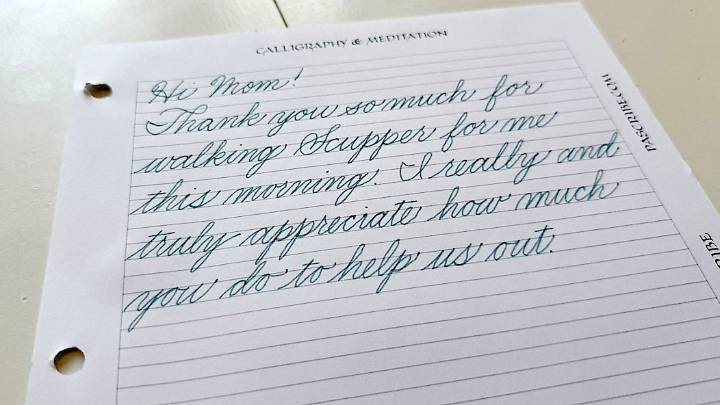 CALLIGRAPHY & MEDITATION
Hi Mom!
Thank you so much for
walking Scupper for me
this morning. I really and
truly appreciate how much
you do to help us out.
PASCRIBE.COM